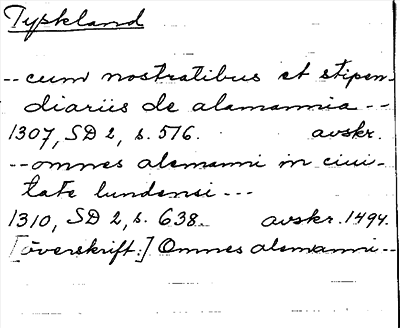 Typkland
-- cum nostratibus et stipen-
diariis de alamannia --
1307, SD 2, s. 516. avskr.
-- omnes alemanni in ciui-
tate lundensi ---
1310, SD 2, s. 638. avskr. 1494.
[överskrift:] Omnes alemanni --